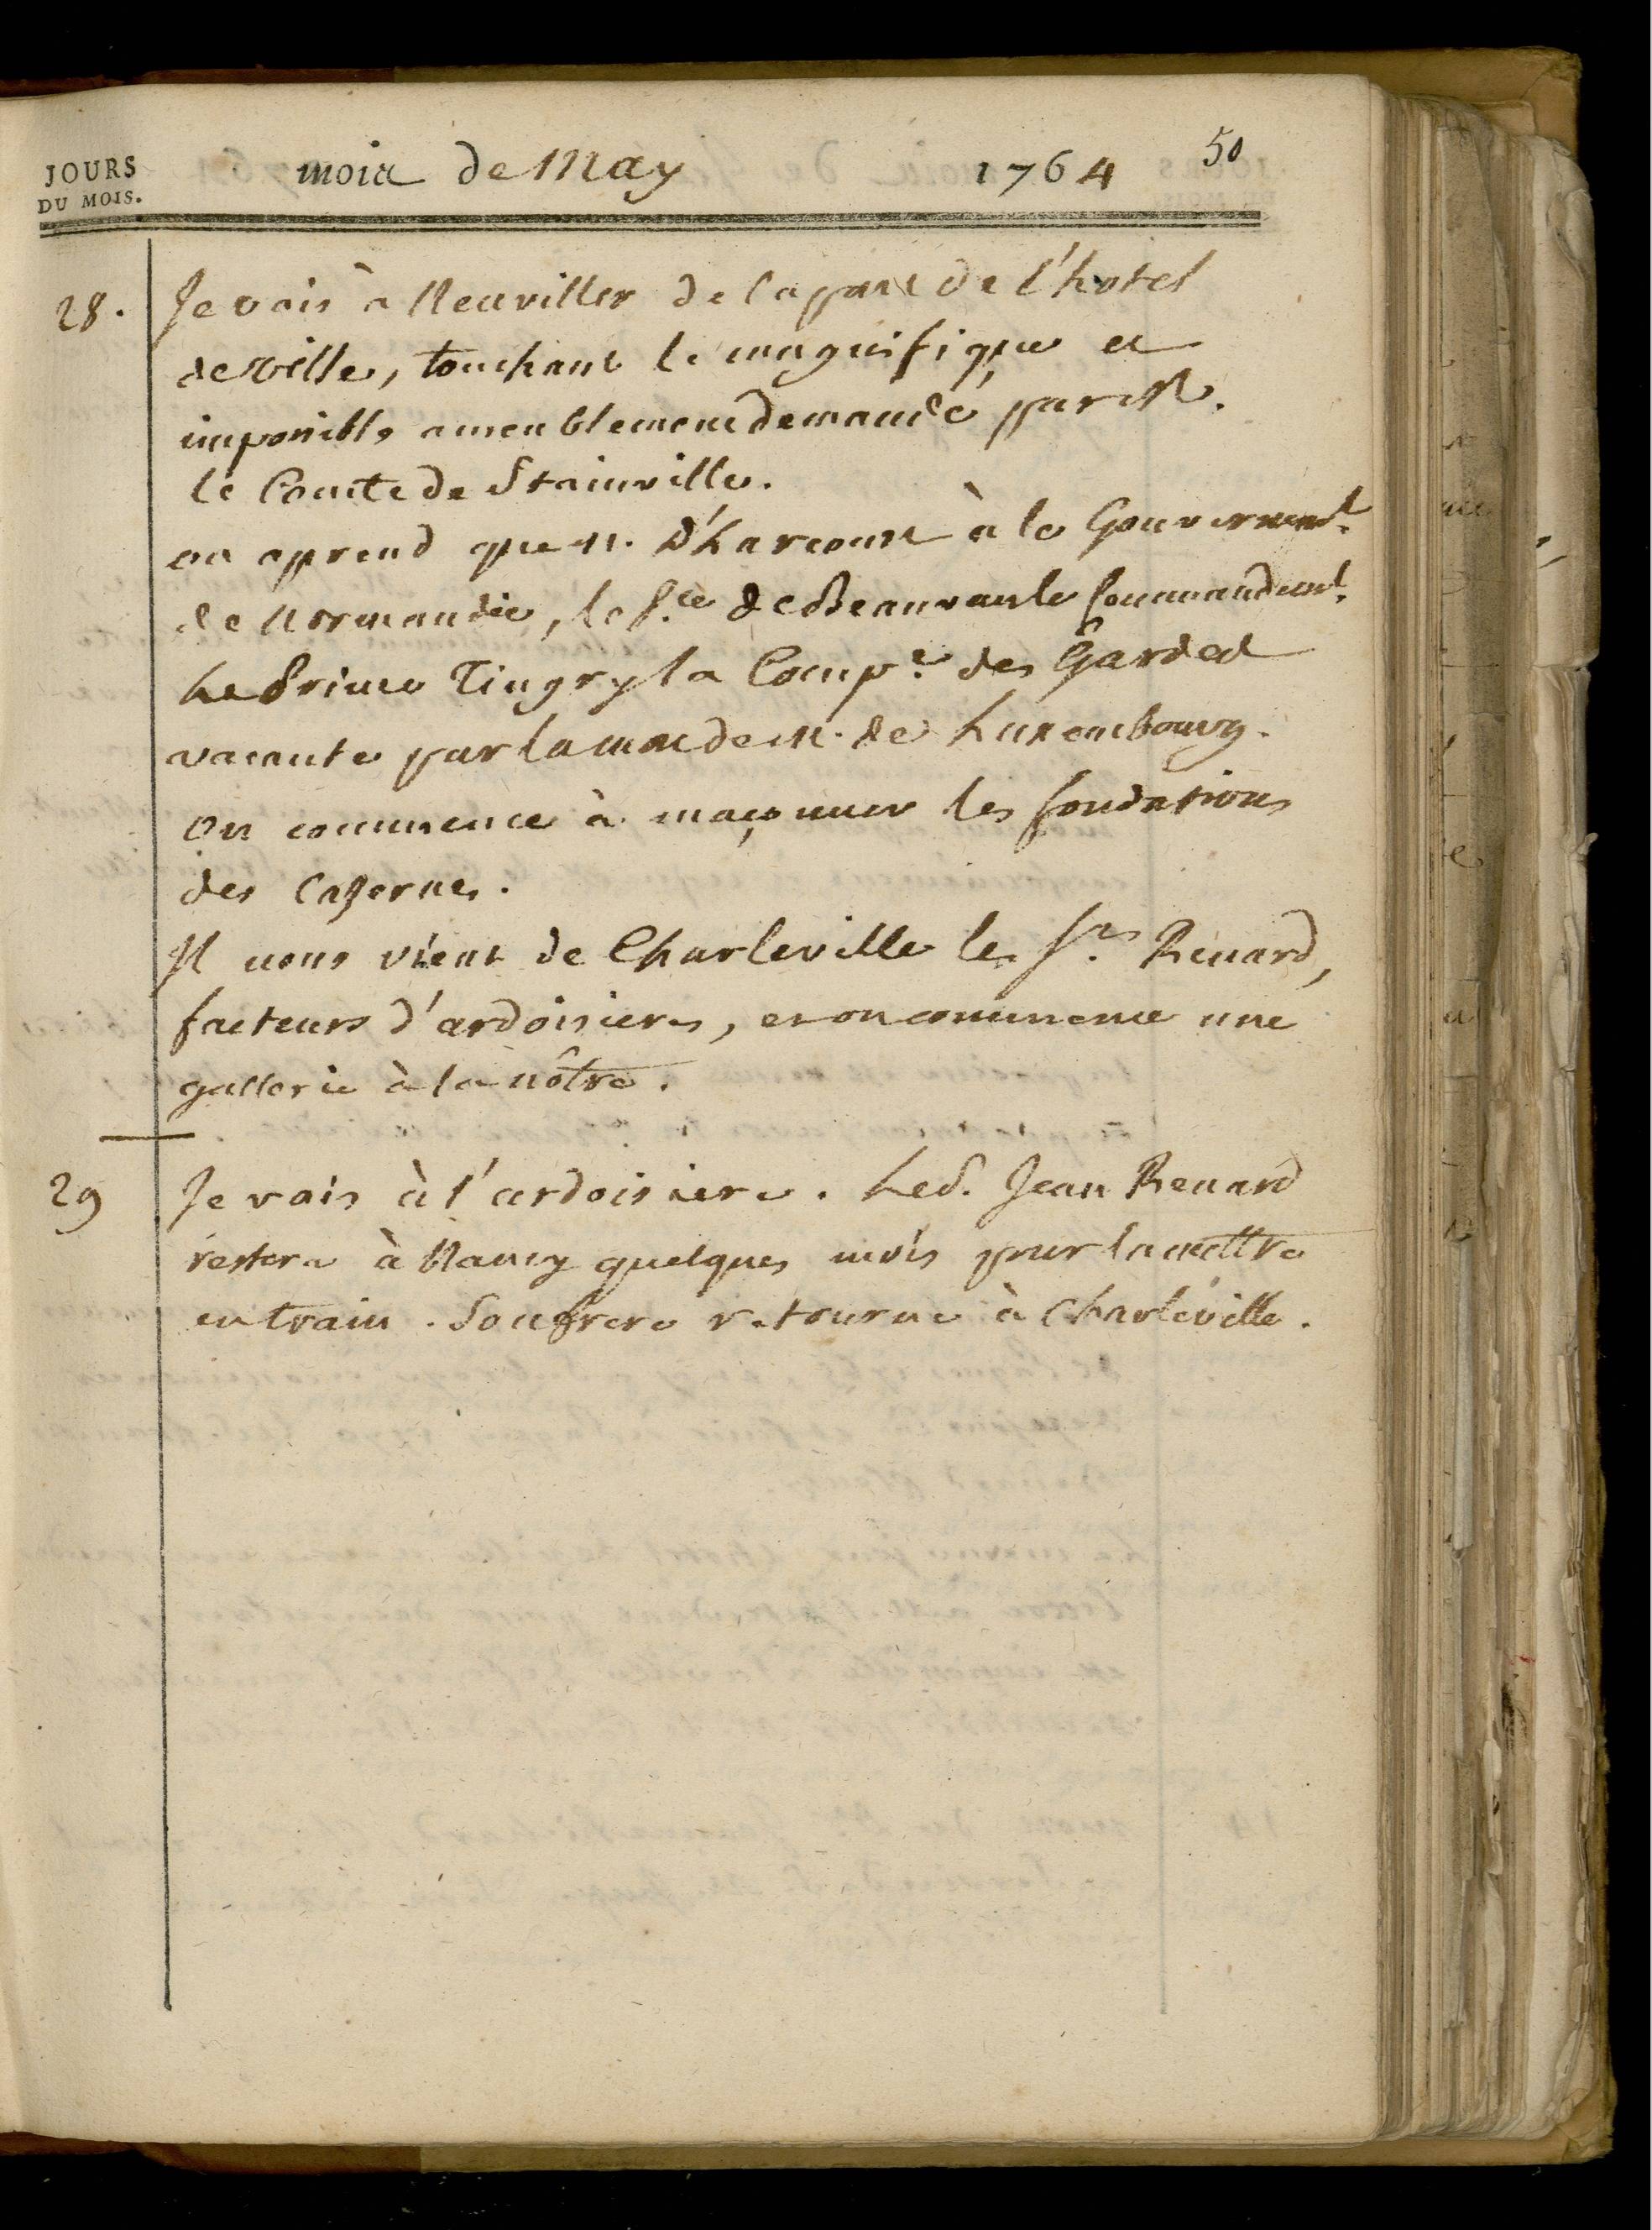 JOURS
DU MOIS.
mois de May 1764 50
28. Je vais à Neuviller de la part de l'hotel
de ville, touchant le magnifique et
impossible ameublement demandé par M.
le Comte de Stainville.
on aprend que M. d'harcourt à le Gouvernem.t
de Normandie, le P.ce de Beauvau le Commandem.t
Le Prince Tingry la Comp.e des Gardes
vacante par la mort de M. de Luxembourg.
On commence à maçonner les fondations
des Cazernes.
Il nous vient de Charleville les Srs. Renard,
facteurs d'ardoisieres, et on commence une
gallerie à la nôtre.
29 Je vais à l'ardoisiere. Le S. Jean Renard
restera à Nancy quelques mois pour la mettre
en train. Son frere retourne à Charleville.